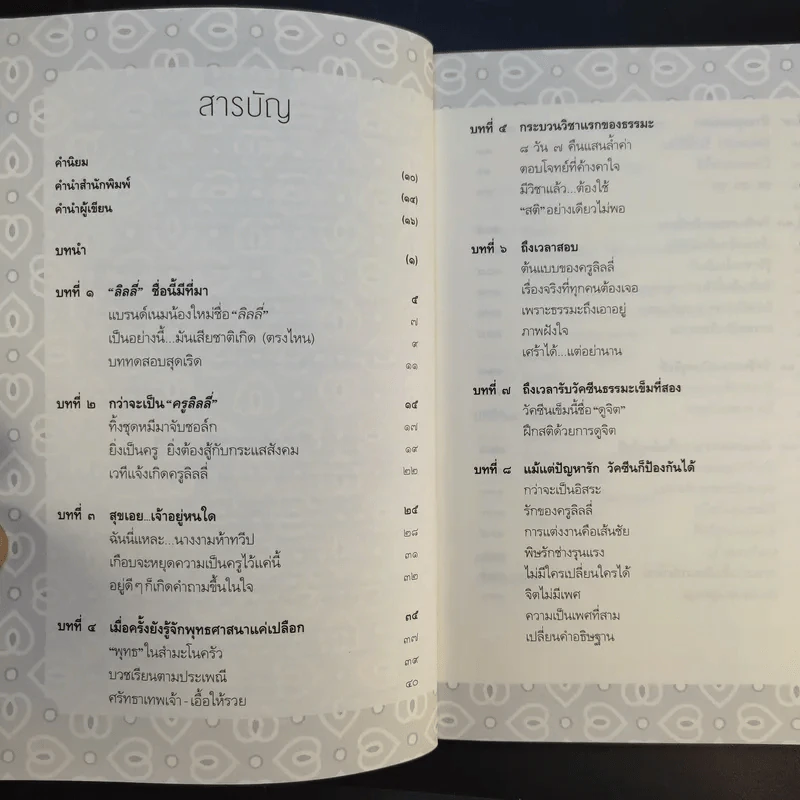 สารบัญ
คำนิยม (๑๐)
คำนำสำนักพิมพ์ (๑๔)
คำนำผู้เขียน (๑๖)
บทนำ (๑)
บทที่ ๑ "ลิลลี่" ชื่อนี้มีที่มา ๕
แบรนด์เนมน้องใหม่ชื่อ "ลิลลี่" ๗
เป็นอย่างนี้...มันเสียชาติเกิด (ตรงไหน) ๙
บททดสอบสุดเริด ๑๑
บทที่ ๒ กว่าจะเป็น "ครูลิลลี่" ๑๕
ทิ้งชุดหมีมาจับชอล์ก ๑๗
ยิ่งเป็นครู ยิ่งต้องสู้กับกระแสสังคม ๑๙
เวทีแจ้งเกิดครูลิลลี่ ๒๒
บทที่ ๓ สุขเอย...เจ้าอยู่หนใด ๒๕
ฉันนี่แหละ...นางงามห้าทวีป ๒๘
เกือบจะหยุดความเป็นครูไว้แค่นี้ ๓๑
อยู่ดีๆ ก็เกิดคำถามขึ้นในใจ ๓๒
บทที่ ๔ เมื่อครั้งยังรู้จักพุทธศาสนาแค่เปลือก ๓๕
"พุทธ" ในสำมะโนครัว ๓๗
บวชเรียนตามประเพณี ๓๙
ศรัทธาเทพเจ้า - เอื้อให้รวย ๔๐
บทที่ ๕ กระบวนวิชาแรกของธรรมะ
๘ วัน ๗ คืนแสนล้ำค่า
ตอบโจทย์ที่ค้างคาใจ
มีวิชาแล้ว...ต้องใช้
"สติ" อย่างเดียวไม่พอ
บทที่ ๖ ถึงเวลาสอบ
ต้นแบบของครูลิลลี่
เรื่องจริงที่ทุกคนต้องเจอ
เพราะธรรมะถึงเอาอยู่
ภาพฝังใจ
เศร้าได้...แต่อย่านาน
บทที่ ๗ ถึงเวลารับวัคซีนธรรมะเข็มที่สอง
วัคซีนเข็มนี้ชื่อ "ดูจิต"
ฝึกสติด้วยการดูจิต
บทที่ ๘ แม้แต่ปัญหารัก วัคซีนก็ป้องกันได้
กว่าจะเป็นอิสระ
รักของครูลิลลี่
การแต่งงานคือเส้นชัย
พิษรักช่างรุนแรง
ไม่มีใครเปลี่ยนใครได้
จิตไม่มีเพศ
ความเป็นเพศที่สาม
เปลี่ยนคำอธิษฐาน